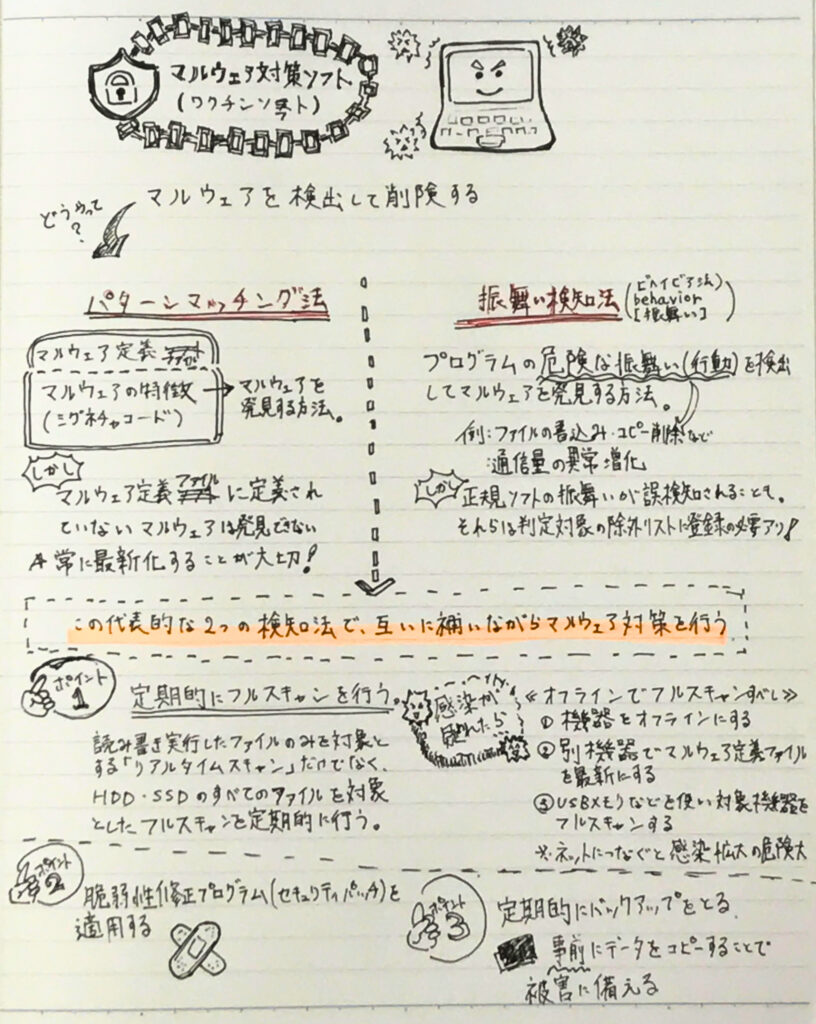 マルウェア対策ソフト
(ワクチンソフト)
マルウェアを検出して削除する
どうやって
?
パターンマッチング法
マルウェア定義
マルウェアの特徴
(シグネチャコード)
マルウェアを
発見する方法。
しかし
マルウェア定義ファイルに定義され
ていないマルウェアは発見できない
常に最新化することが大切!
振舞い検知法
(ビヘイビア法)
behavior
[振舞い]
プログラムの危険な振舞い(行動)を検出
してマルウェアを発見する方法。
例:ファイルの書込み・コピー削除など
:通信量の異常増化
しかし
正規ソフトの振舞いが誤検知されることも。
それらは判定対象の除外リストに登録の必要アリ!
この代表的な2つの検知法で、互いに補いながらマルウェア対策を行う
ポイント
1
定期的にフルスキャンを行う。
読み書き実行したファイルのみを対象と
する「リアルタイムスキャン」だけでなく、
HDD・SSDのすべてのファイルを対象
としたフルスキャンを定期的に行う。
感染が
疑われたら
≪オフラインでフルスキャンすべし≫
① 機器をオフラインにする
② 別機器でマルウェア定義ファイル
を最新にする
③ USBメモリなどを使い対象機器を
フルスキャンする
※ネットにつなぐと感染拡大の危険大
ポイント
2
脆弱性修正プログラム(セキュリティパッチ)を
適用する
ポイント
3
定期的にバックアップをとる。
事前にデータをコピーすることで
被害に備える